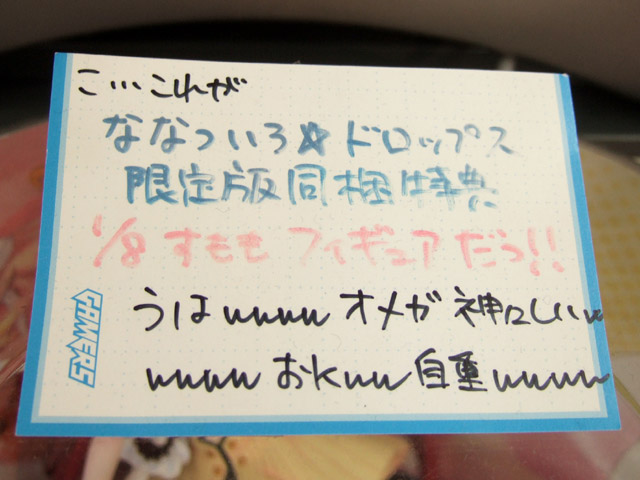 こ…これが
なないろ★ドロップス
限定版同梱特典
1/8 すもも フィギュア だっ!!
うはwwww オメガ 神々しいw
wwww おkww 自重wwww
GAMERS